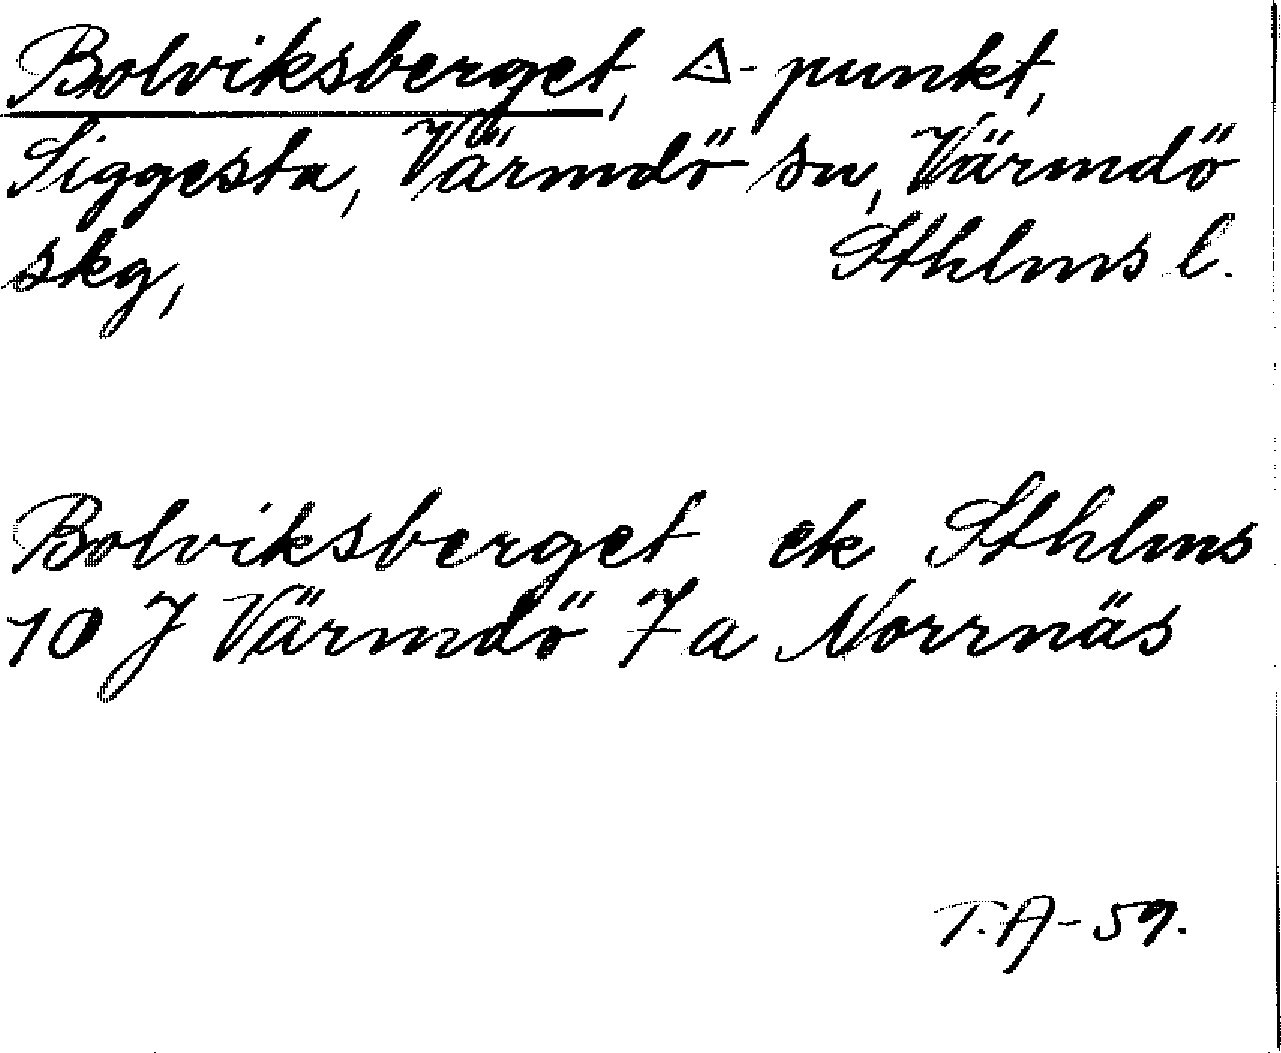 Bolviksberget, △-punkt,
Siggesta, Värmdö sn, Värmdö
skg, Sthlms l.
Bolviksberget ek Sthlms
10 J Värmdö 7a Norrnäs
T.A-59.